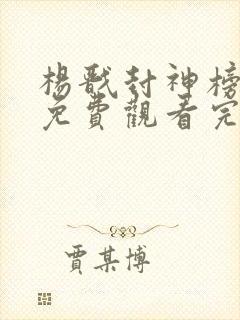 楊戩封神榜
免費觀看完
賈某博